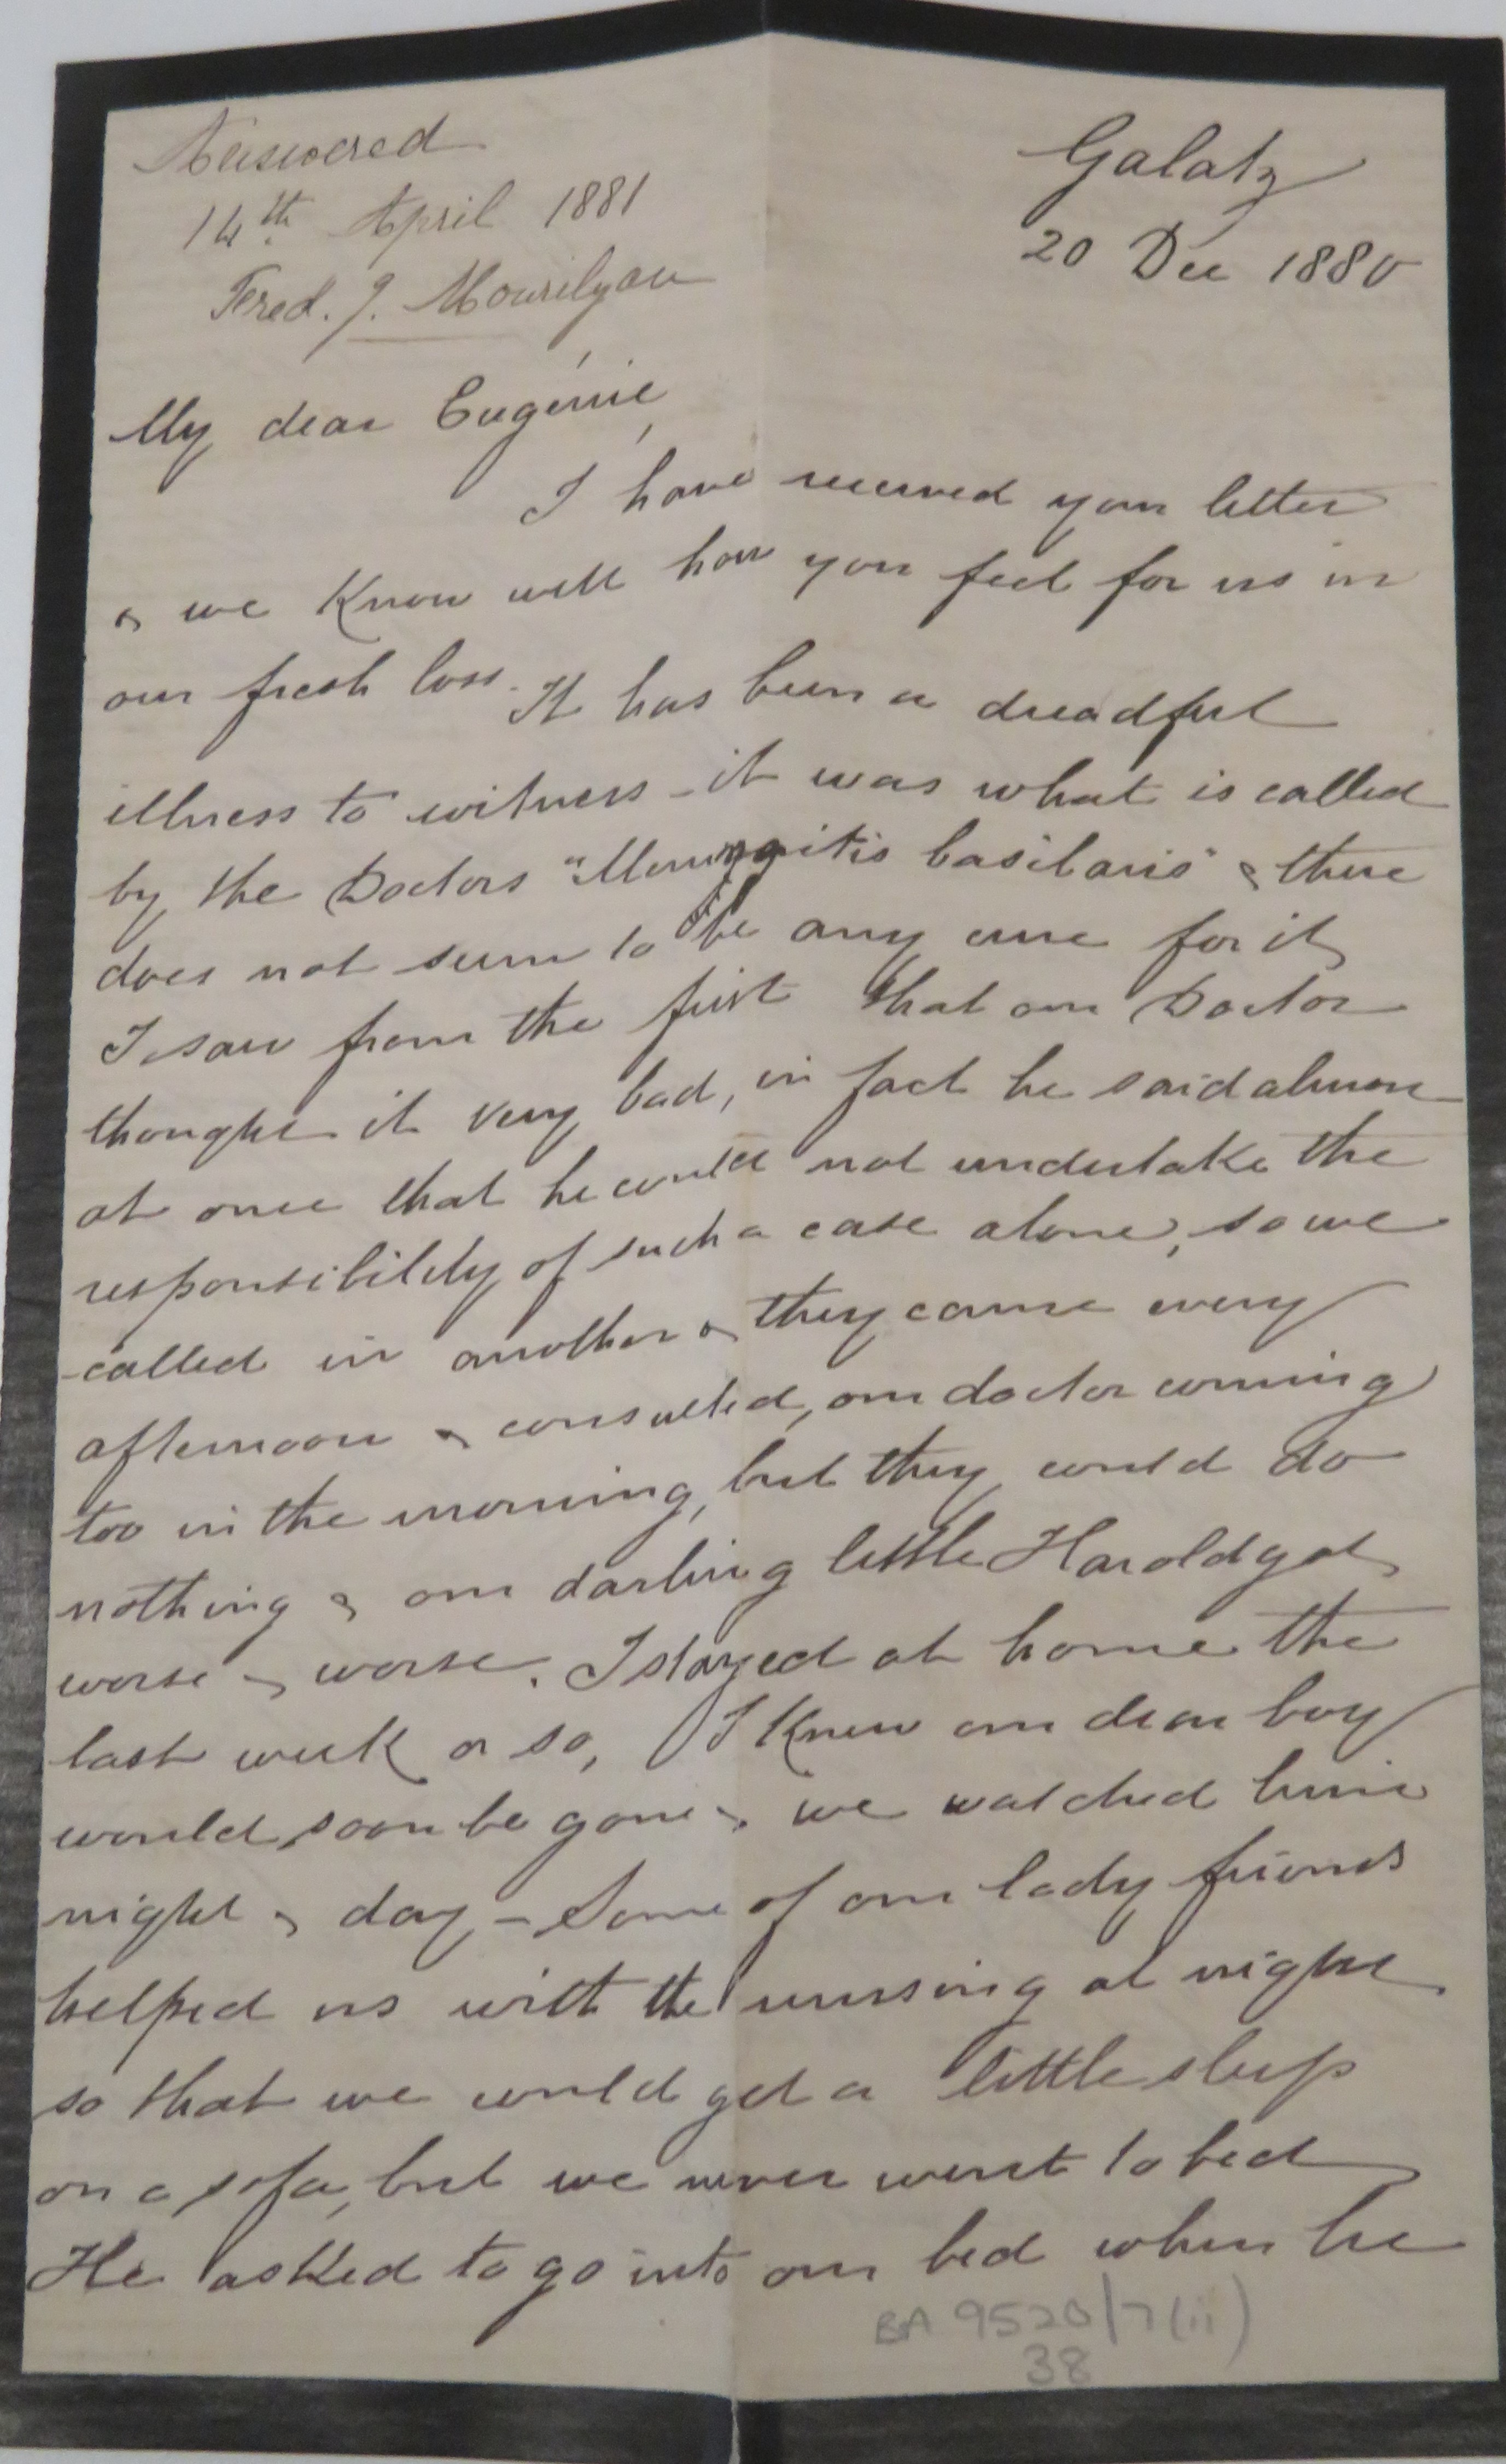 Answered
14th April 1881
Fred. J. Mourilyan
Galatz
20 Dec 1880
My dear Eugénie,
I have received your letter
& we Know well how you feel for us in
our fresh loss. It has been a dreadful
illness to witness - it was what is called
by the Doctors "Meningitis basilaris" & there
does not seem to be any cure for it
I saw from the first that our Doctor
thought it very bad, in fact he said almost
at once that he could not undertake the
responsibility of such a case alone, so we
called in another & they came every
afternoon & consulted, our doctor coming
too in the morning, but they could do
nothing & our darling little Harold got
worse & worse. I stayed at home the
last week or so, I Knew our dear boy
would soon be gone & we watched him
night & day - Some of our lady friends
helped us with the nursing at night
so that we could get a little sleep
on a sofa, but we never went to bed
He asked to go into our bed when he
BA 9520/7(ii)
38